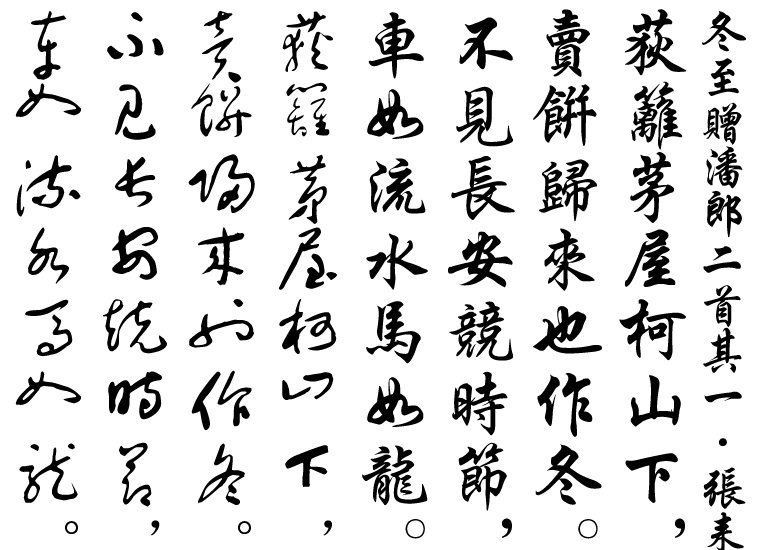 冬至贈潘郎二首其一·張耒
荻籬茅屋柯山下，
賣餅歸來也作冬。
不見長安競時節，
車如流水馬如龍。
荻籬茅屋柯山下，
賣餅歸來也作冬。
不見長安競時節，
車如流水馬如龍。